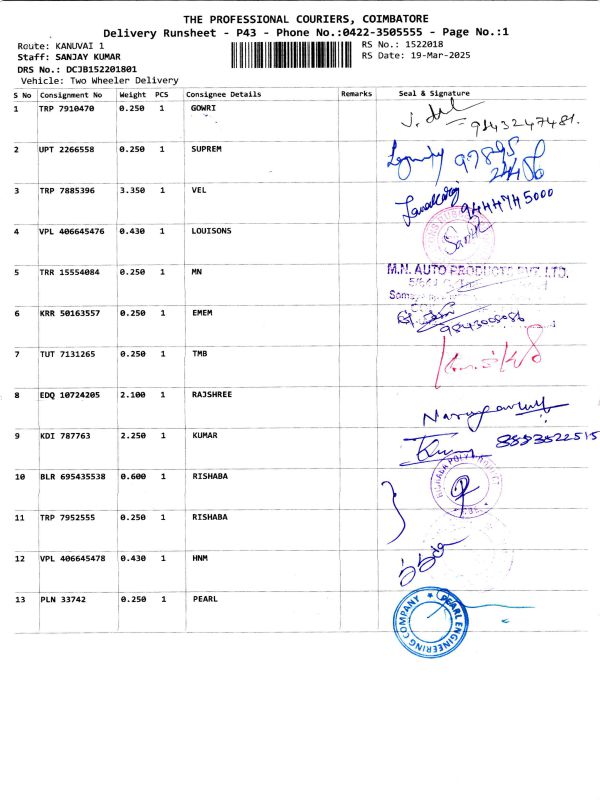 THE PROFESSIONAL COURIERS, COIMBATORE
Delivery Runsheet - P43 - Phone No.:0422-3505555 - Page No.:1
Route: KANUVAI 1
RS No.: 1522018
Staff: SANJAY KUMAR
RS Date: 19-Mar-2025
DRS No.: DCJB152201801
Vehicle: Two Wheeler Delivery
S No Consignment No Weight PCS Consignee Details Remarks Seal & Signature
1 TRP 7910470 0.250 1 GOWRI 9843247481.
2 UPT 2266558 0.250 1 SUPREM
3 TRP 7885396 3.350 1 VEL 9444745000
4 VPL 406645476 0.430 1 LOUISONS
5 TRR 15554084 0.250 1 MN M.N. AUTO PRODUCTS PVT. LTD.
6 KRR 50163557 0.250 1 EMEM
7 TUT 7131265 0.250 1 TMB
8 EDQ 10724205 2.100 1 RAJSHREE
9 KDI 787763 2.250 1 KUMAR Kumar
10 BLR 695435538 0.600 1 RISHABA
11 TRP 7952555 0.250 1 RISHABA
12 VPL 406645478 0.430 1 HNM
13 PLN 33742 0.250 1 PEARL PEARL ENGINEERING COMPANY